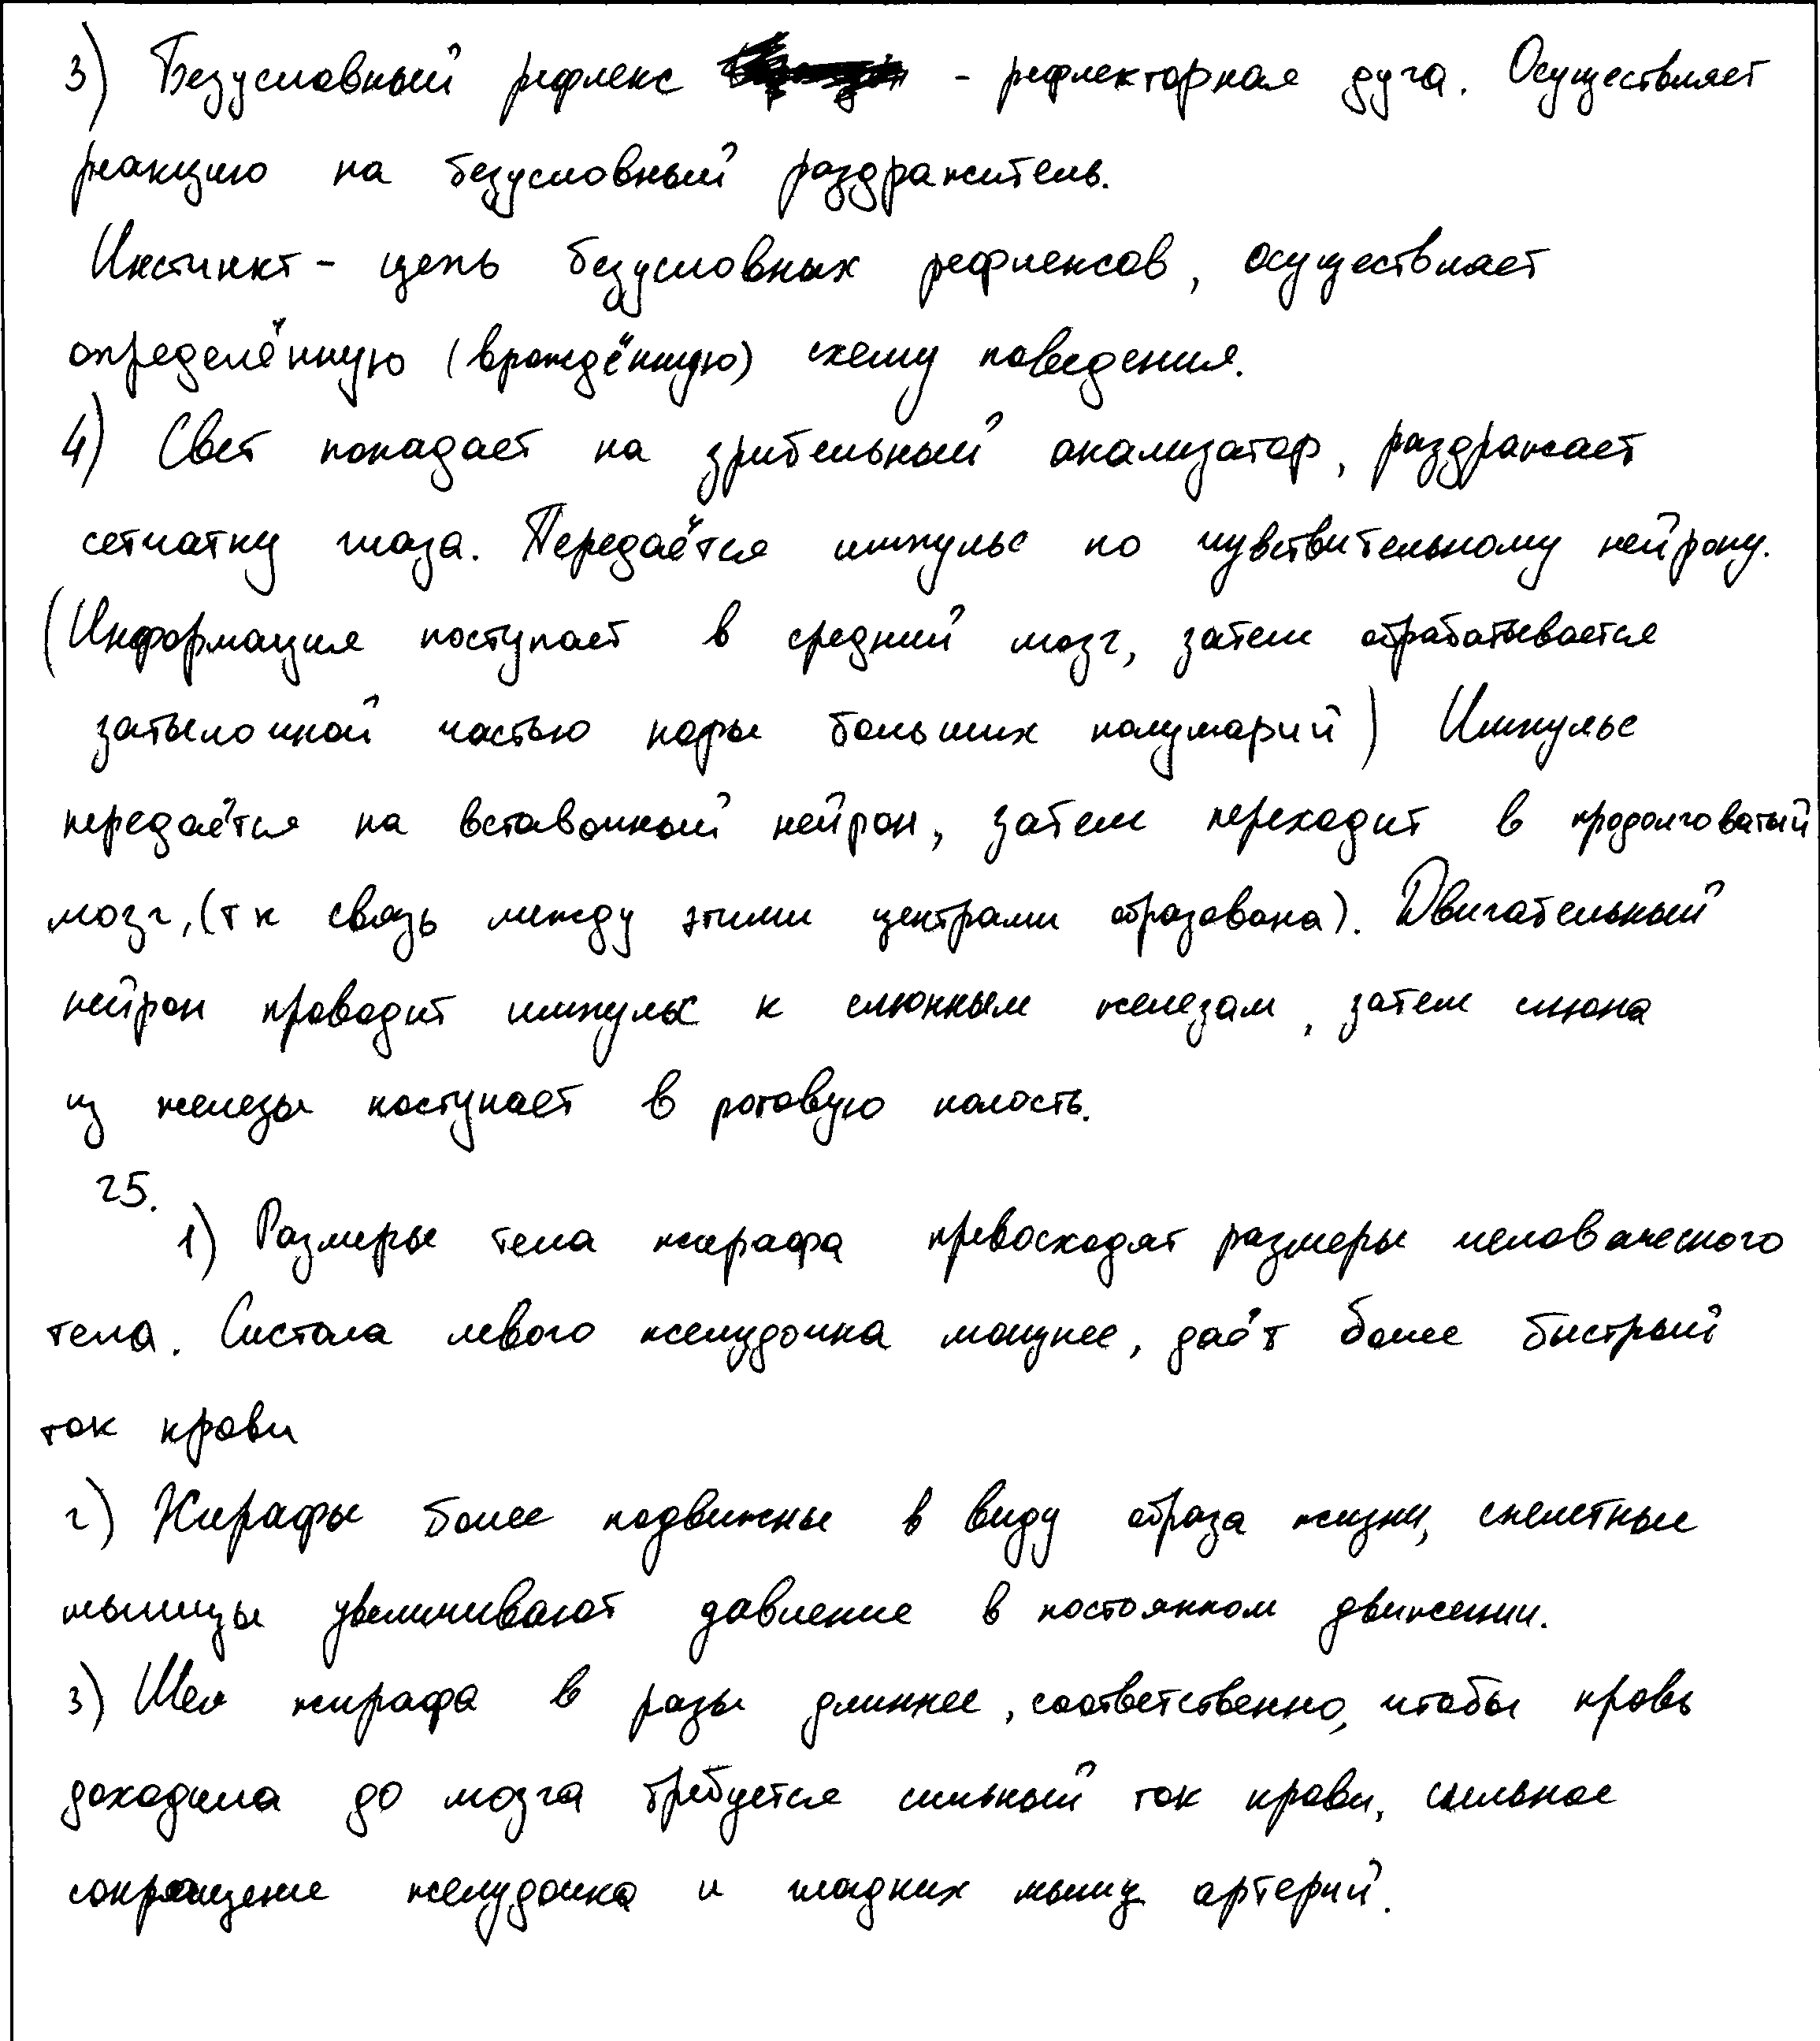 3) Безусловный рефлекс - рефлекторная дуга. Осуществляет
реакцию на безусловный раздражитель.
Инстинкт - цепь безусловных рефлексов, осуществляет
определённую (врождённую) схему поведения.
4) Свет попадает на зрительный анализатор, раздражает
сетчатку глаза. Передаётся импульс по чувствительному нейрону.
(Информация поступает в средний мозг, затем обрабатывается
затылочной частью коры больших полушарий) Импульс
передаётся на вставочный нейрон, затем переходит в продолговатый
мозг, (тк связь между этими центрами образована). Двигательный
нейрон проводит импульс к слюнным железам, затем слюна
из железы поступает в ротовую полость.
25.
1) Размеры тела жирафа превосходят размеры человеческого
тела. Систола левого желудочка мощнее, даёт более быстрый
ток крови
2) Жирафы более подвижны в виду образа жизни, скелетные
мышцы увеличивают давление в постоянном движении.
3) Шея жирафа в разы длиннее, соответственно, чтобы кровь
доходила до мозга требуется сильный ток крови, сильное
сокращение желудочка и гладких мышц артерий.